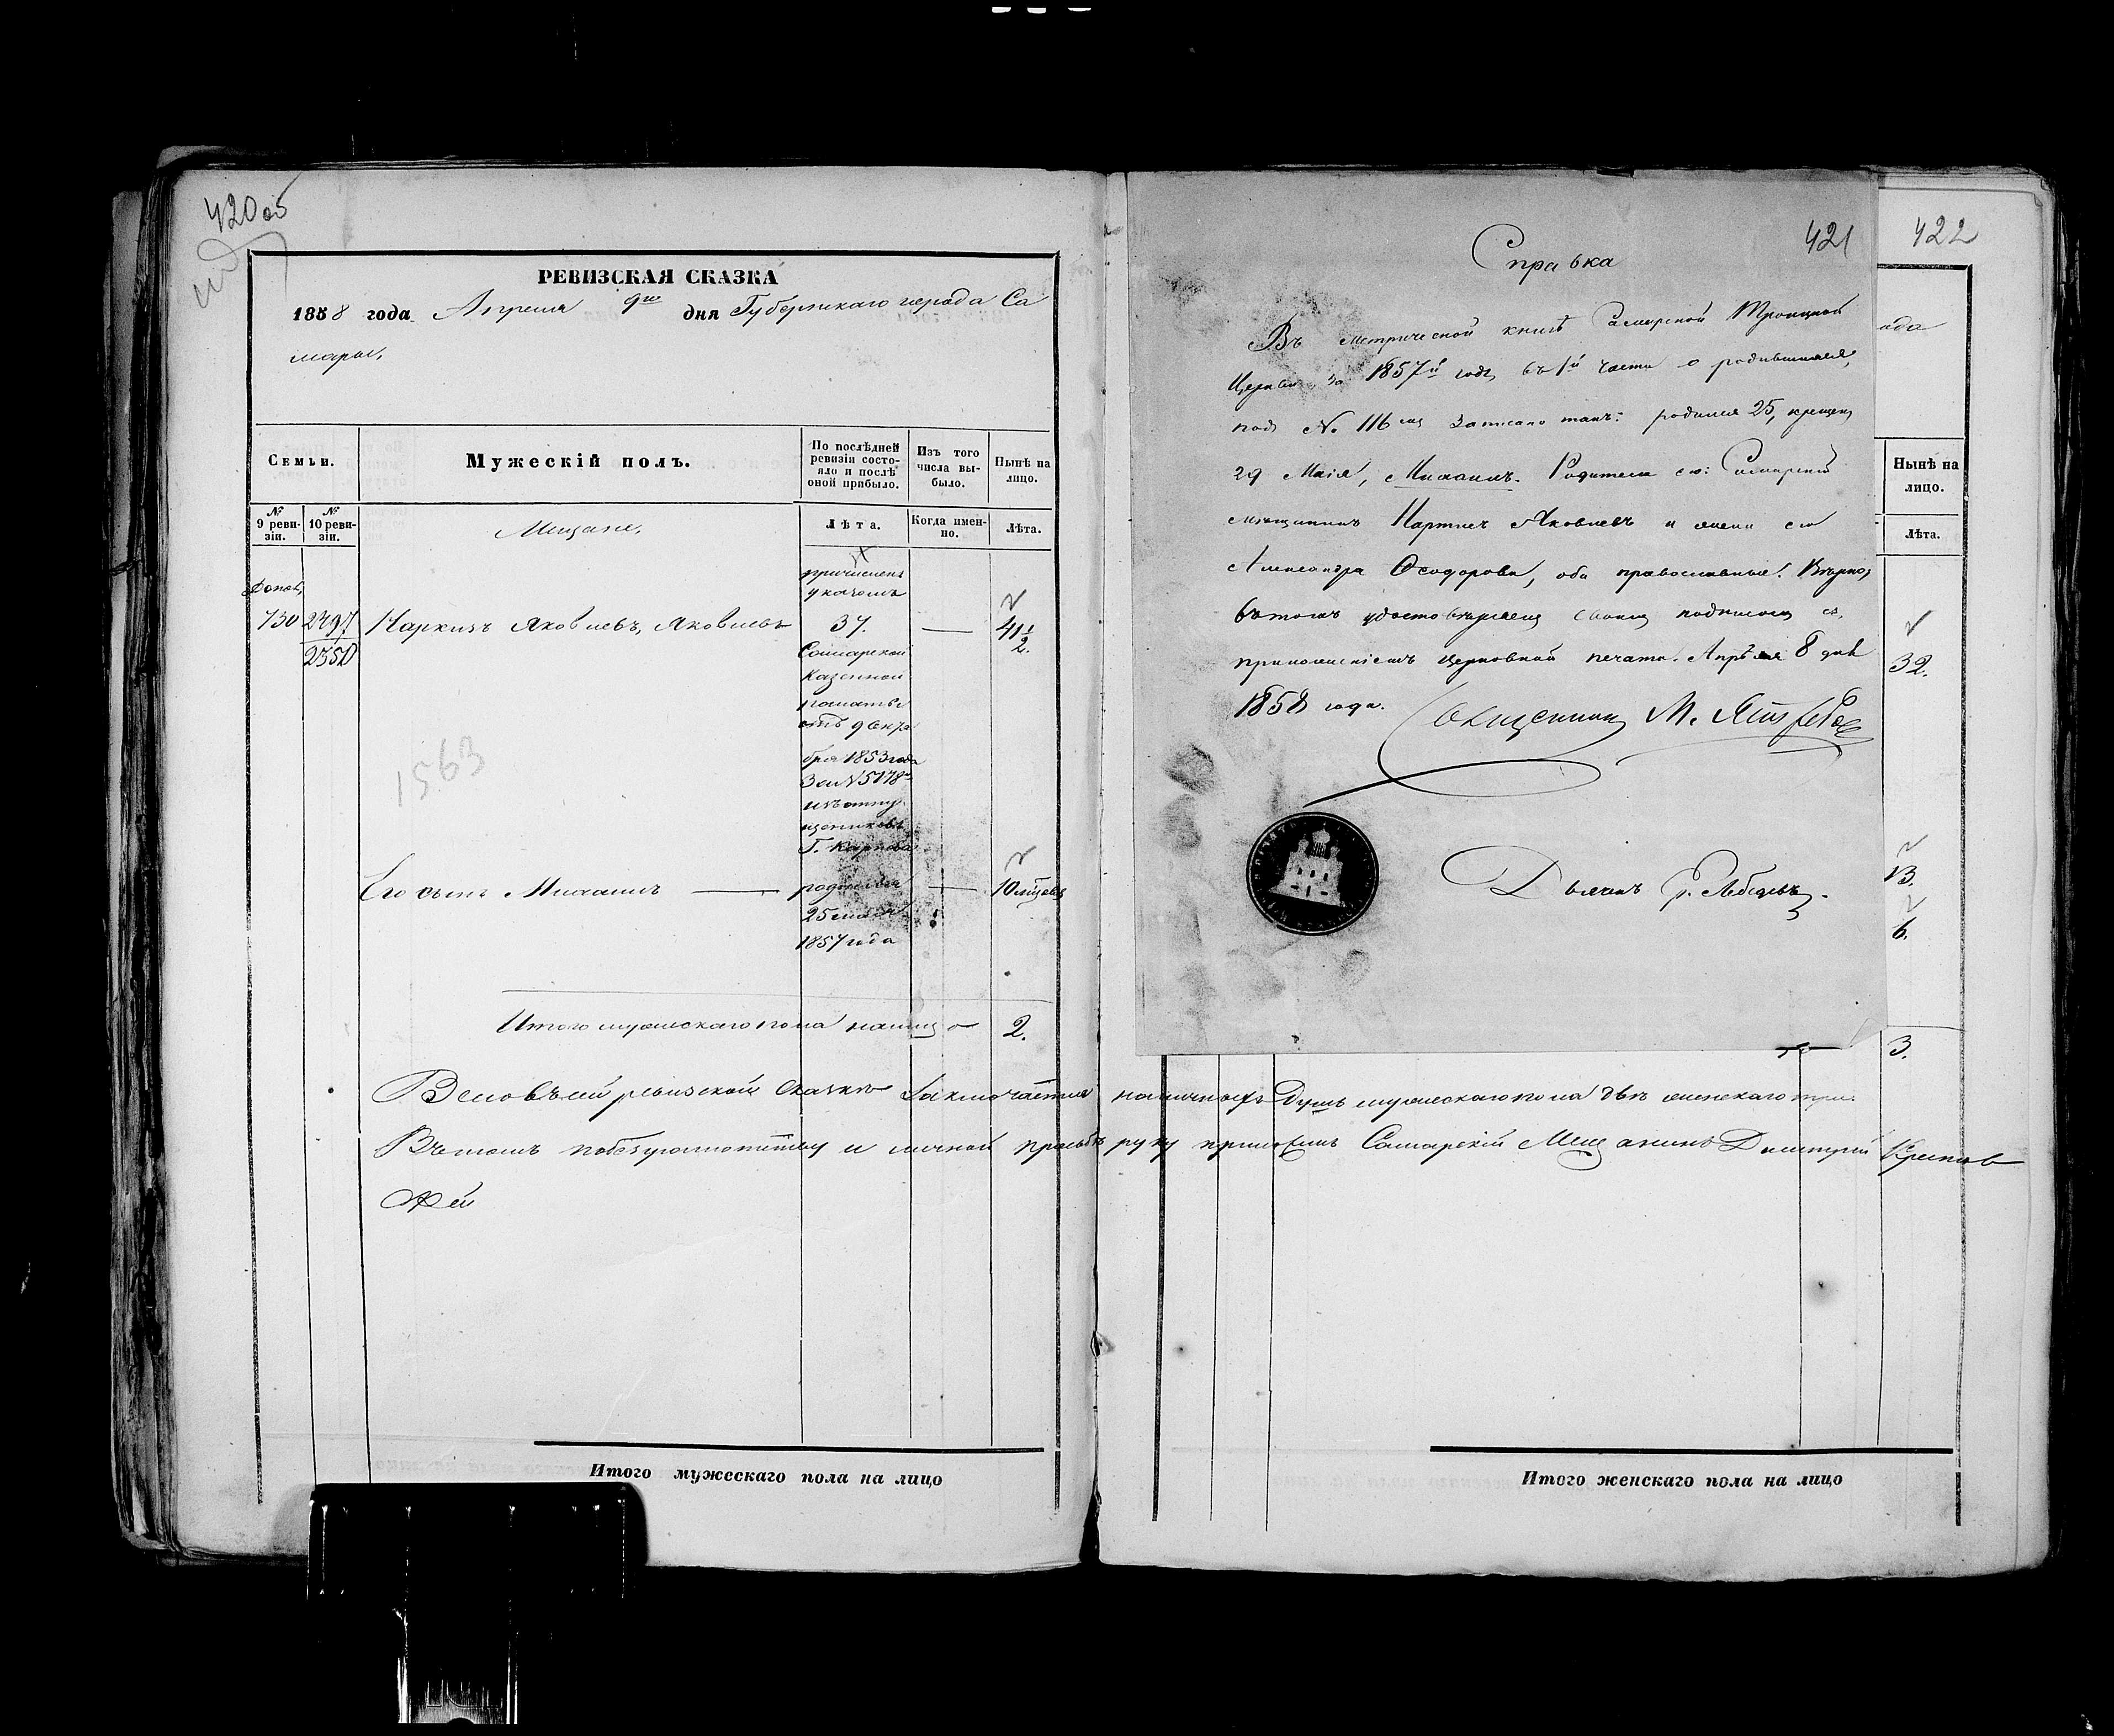 420 об
РЕВИЗСКАЯ СКАЗКА
1858 года Апреля 9го дня Губернскаго города Са
мары,
Семьи.
Мужескій полъ.
По послѣдней ревизіи состо-
яло и послѣ
оной прибыло.
Изъ того
числа вы-
было.
Нынѣ на
лицо.
№
9 реви-
зіи.
№
10 реви-
зіи.
Мещане,
Лѣта.
Когда имен-
но.
Лѣта.
причисленъ
указомъ
730 2497 Наркизъ Яковлевъ, Яковлевъ 37. — 41 1/2.
2550
Самарской
Казенной
палаты
отъ 9 октя
бря 1853 года
За № 5178
изъ отпу
щениковъ
Г. Карпова
1563
Его сынъ Михаилъ — родился — 10 мѣсяц
25 мая
1857 года
Итого мужескаго пола на лицо 2.
Всего въ сей ревизской сказкѣ заключается наличныхъ душъ мужескаго пола двѣ женскаго три.
Въ томъ по безграмотству и личной прозьбѣ руку приложилъ Самарскій Мещанинъ Дмитрій
Итого мужескаго пола на лицо
421
Справка
Въ метрической книгѣ Самарской Троицкой
Церкви, за 1857й годъ, въ 1й части о родившихся,
подъ № 116мъ записано такъ: родился 25, крещенъ
29 Маія, Михаилъ. Родители его: Самарскій
мѣщанинъ Наркисъ Яковлевъ и жена его
Александра Ѳеодорова, оба православные. Вѣрно,
въ томъ удостовѣряемъ своимъ подписомъ съ
приложеніемъ церковной печати. Апрѣля 8 дня
1858 года. Священникъ М.
Дьячекъ Лебедевъ.
422
ада
Нынѣ на
лицо.
Лѣта.
32.
13.
6.
3.
Итого женскаго пола на лицо